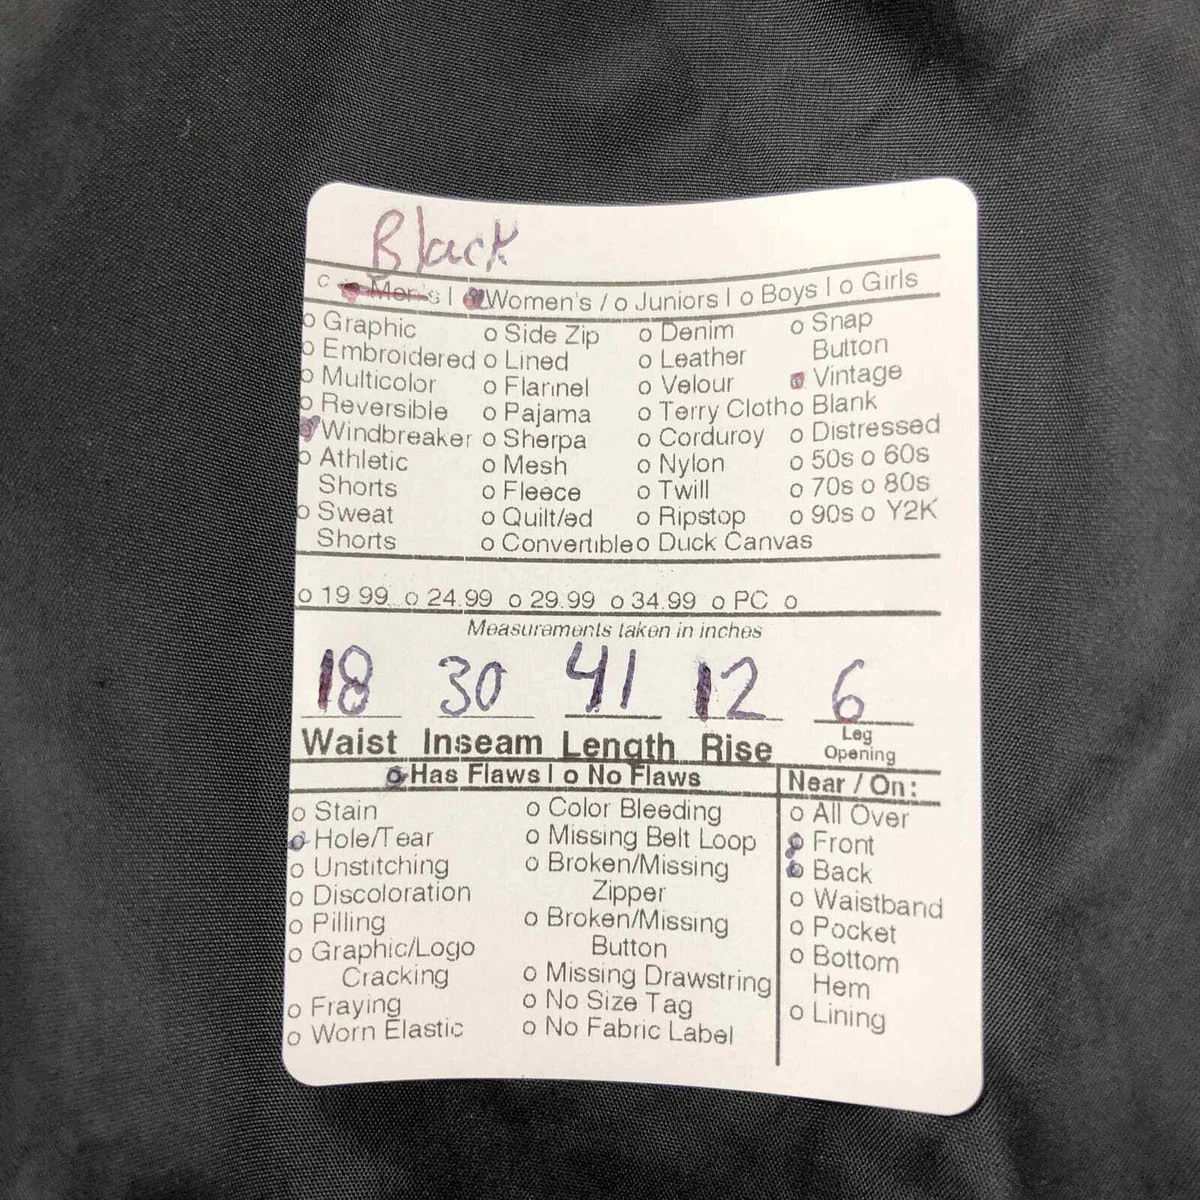 Black
o Men's | o Women's / o Juniors | o Boys | o Girls
o Graphic o Side Zip o Denim o Snap
o Embroidered o Lined o Leather Button
o Multicolor o Flannel o Velour o Vintage
o Reversible o Pajama o Terry Cloth o Blank
o Windbreaker o Sherpa o Corduroy o Distressed
o Athletic o Mesh o Nylon o 50s o 60s
Shorts o Fleece o Twill o 70s o 80s
o Sweat o Quilt/ed o Ripstop o 90s o Y2K
Shorts o Convertible o Duck Canvas
o 19.99 o 24.99 o 29.99 o 34.99 o PC o
Measurements taken in inches
18 30 41 12 6
Waist Inseam Length Rise Leg
Opening
o Has Flaws | o No Flaws Near / On:
o Stain o Color Bleeding o All Over
o Hole/Tear o Missing Belt Loop o Front
o Unstitching o Broken/Missing o Back
o Discoloration Zipper o Waistband
o Pilling o Broken/Missing o Pocket
o Graphic/Logo Button o Bottom
Cracking o Missing Drawstring Hem
o Fraying o No Size Tag o Lining
o Worn Elastic o No Fabric Label